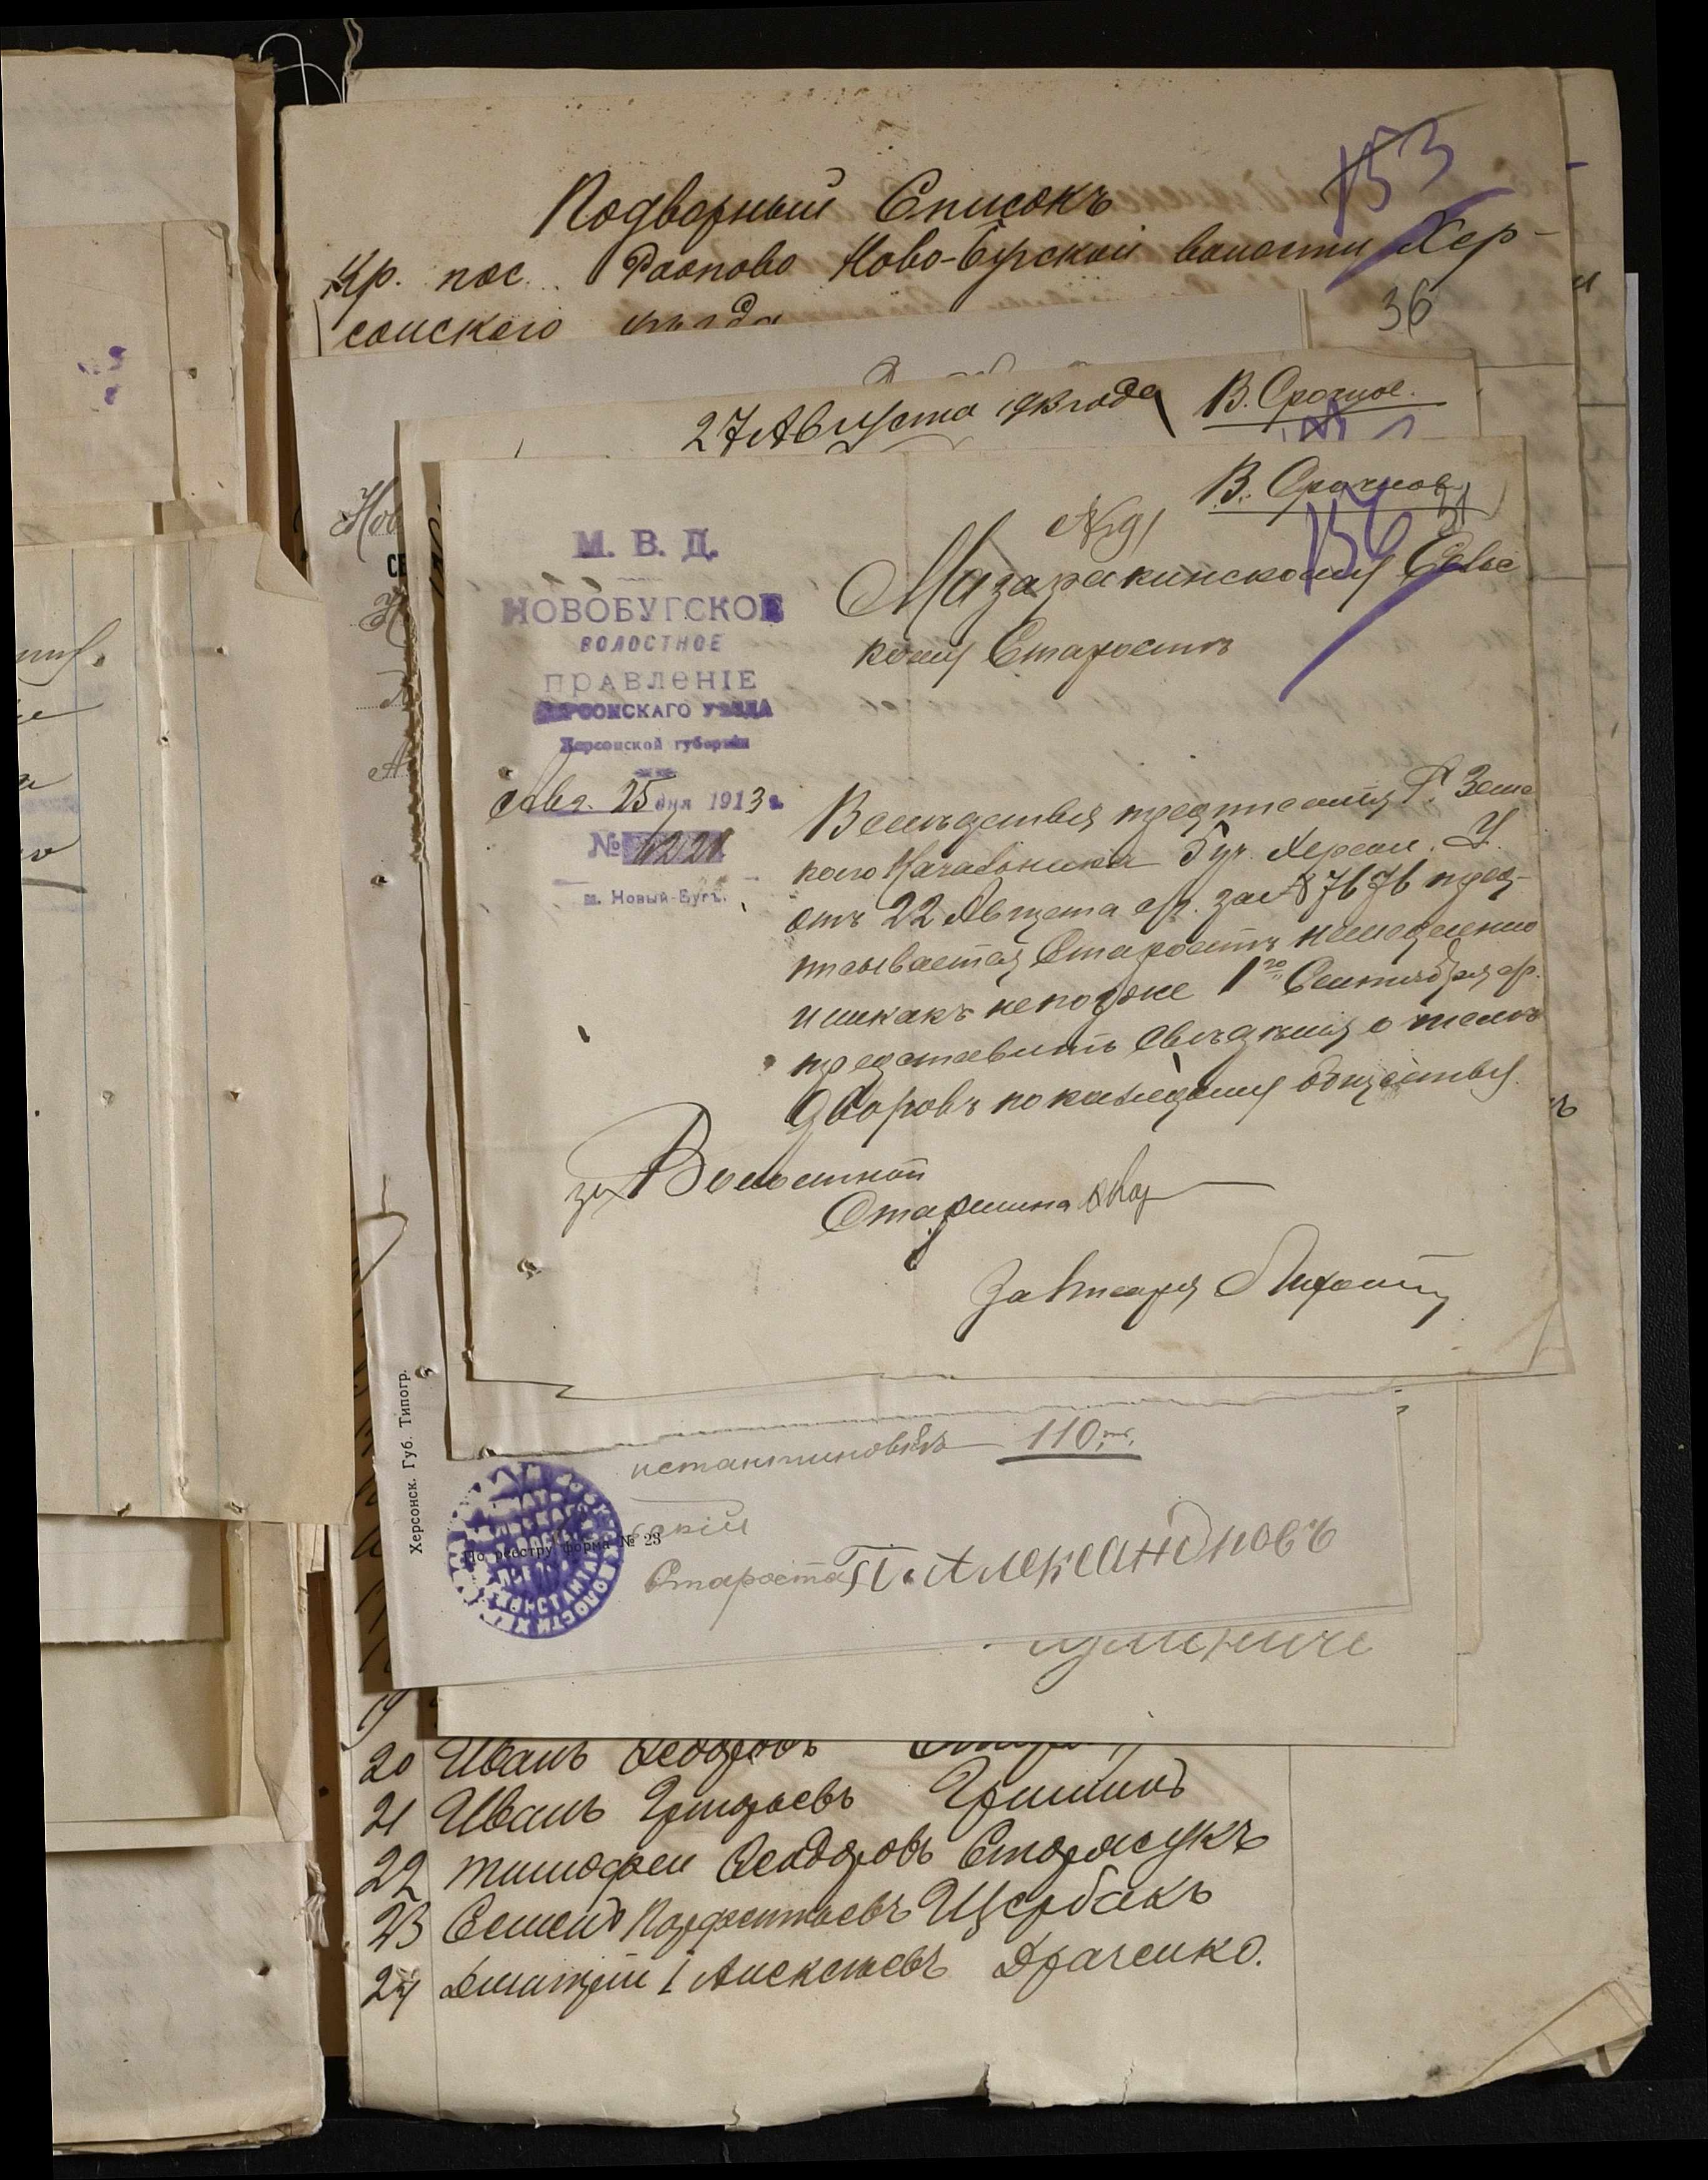 153
Подворный Списокъ
Кр. пос. Ново-Бугской волости Хер-
сонского уѣзда
36
27 Августа 1913 года В. Срочное.
В. Срочное
№ 91
156
М. В. Д.
НОВОБУГСКОЕ
ВОЛОСТНОЕ
ПРАВЛЕНІЕ
ХЕРСОНСКАГО УѢЗДА
Херсонской губерніи
Авг. 25 дня 1913 г.
№
м. Новый-Бугъ.
Мазаракинскому Сельс
кому Старостѣ
Вслѣдствія предписанія Г. Земс
кого Начальника 5 уч. Херсон. У.
отъ 22 Августа с/г. за № 7676 пред-
писывается Старостѣ немедленно
и никакъ не позже 1го Сентября с/г.
представить свѣдѣнія о числѣ
дворовъ по каждому обществу.
за Волостной
Старшина
За Писаря
Херсонск. Губ. Типогр.
нстантиновкѣ 110
По реестру форма № 23
скій
Староста П. Александровъ
19
20 Иванъ Ѳеодоровъ
21 Иванъ Григорьевъ Гришинъ
22 Тимофей Ѳеодоровъ Сторасукъ
23 Семенъ Парфентьевъ Щербакъ
24 Дмитрій I Алексѣевъ Драченко.